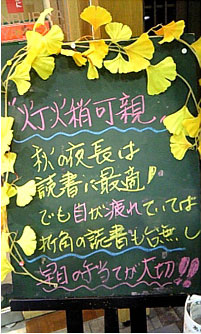 "灯火稍可親"
秋の夜長は
読書に最適！
でも目が疲れていては
折角の読書も台無し
眼目の手当てが大切!!